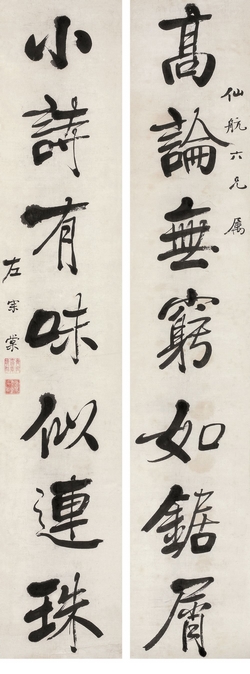 高論無窮如鋸屑
仙航六兄屬
小詩有味似連珠
左宗棠